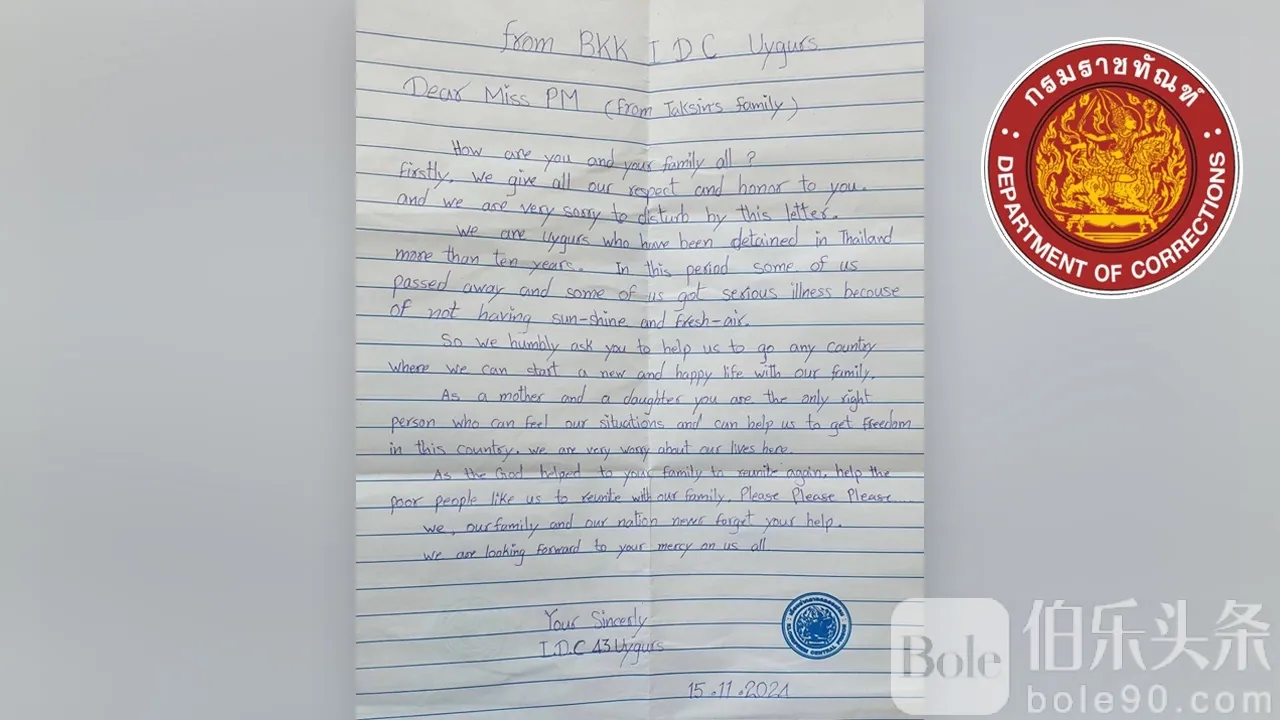 from BKK I D C Uygurs
Dear Miss PM (from Taksin's family)
How are you and your family all ?
Firstly, we give all our respect and honor to you.
and we are very sorry to disturb by this letter.
We are Uygurs who have been detained in Thailand
more than ten years. In this period some of us
passed away and some of us got serious illness becouse
of not having sun-shine and fresh-air.
So we humbly ask you to help us to go any country
where we can start a new and happy life with our family.
As a mother and a daughter you are the only right
person who can feel our situations and can help us to get freedom
in this country. we are very worry about our lives here.
As the God helped to your family to reunite again, help the
poor people like us to reunite with our family. Please Please Please....
we, our family and our nation never forget your help.
we are looking forward to your mercy on us all
Your Sincerly
I.D.C 43 Uygurs
15.11.2024
กรมราชทัณฑ์
DEPARTMENT OF CORRECTIONS
Bole 伯乐头条
bole90.com